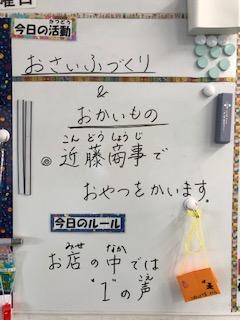 曜日
かつどう
今日の活動
おさいふづくり
&
おかいもの
こんどうしょうじ
◎近藤商事で
おやつをかいます。
今日のルール
みせ なか
お店の中では
こえ
"1"の声